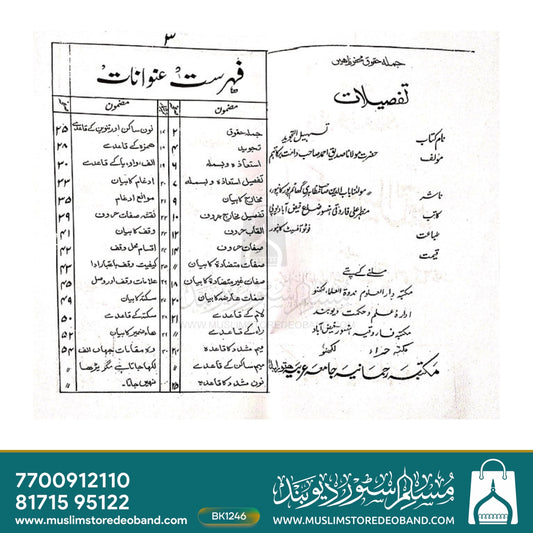 جملہ حقوق محفوظ ہیں
تفصیلات
نام کتاب تسہیل التجوید
مؤلف حضرت مولانا صدیق احمد صاحب دامت برکاتہم
ناشر
کاتب
طباعت فوٹو آفسیٹ کانپور
قیمت
ملنے کے پتے
مکتبہ دار العلوم ندوۃ العلماء لکھنؤ
ادارہ علم و حکمت دیوبند
مکتبہ فاروقیہ
مکتبہ حراء لکھنؤ
مکتبہ رحمانیہ جامعہ عربیہ
۳
فہرست عنوانات
مضمون
جملہ حقوق ۲
تجوید ۴
استعاذہ و بسملہ ۶
تفصیل استعاذہ و بسملہ ۷
مخارج کا بیان ۹
تفصیل مخارج حروف ۱۰
القاب حروف ۱۲
صفات حروف ۱۴
صفات متضادۃ کا بیان ״
صفات غیر متضادۃ کا بیان ۱۸
صفات عارضہ کا بیان ۲۰
لام کے قاعدے ״
راء کے قاعدے
میم مشدد کا قاعدہ
میم ساکن کے قاعدے ״
نون مشدد کا قاعدہ ۲۵
مضمون
نون ساکن اور تنوین کے قاعدے ۲۵
ہمزہ کے قاعدے ۲۸
الف واو یا کے قاعدے ۳۰
ادغام کا بیان ۳۳
موانع ادغام ۳۵
نقشہ صفات حروف ۳۹
وقف کا بیان ۴۱
اقسام محل وقف ۴۲
کیفیت وقف باعتبار ادا ۴۳
علامات وقف اور وصل ۴۵
سکتہ کا بیان ۴۹
سکتہ کے قاعدے ۵۰
ھاء ضمیر کا بیان ۵۲
وہ مقامات جہاں الف ۵۴
لکھا جاتا ہے مگر پڑھا ״
نہیں جاتا۔ ״
مسلم سٹور دیوبند
WWW.MUSLIMSTOREDEOBAND.COM
7700912110
81715 95122
www.muslimstoredeoband.com
BK1246
مسلم سٹور دیوبند
WWW.MUSLIMSTOREDEOBAND.COM